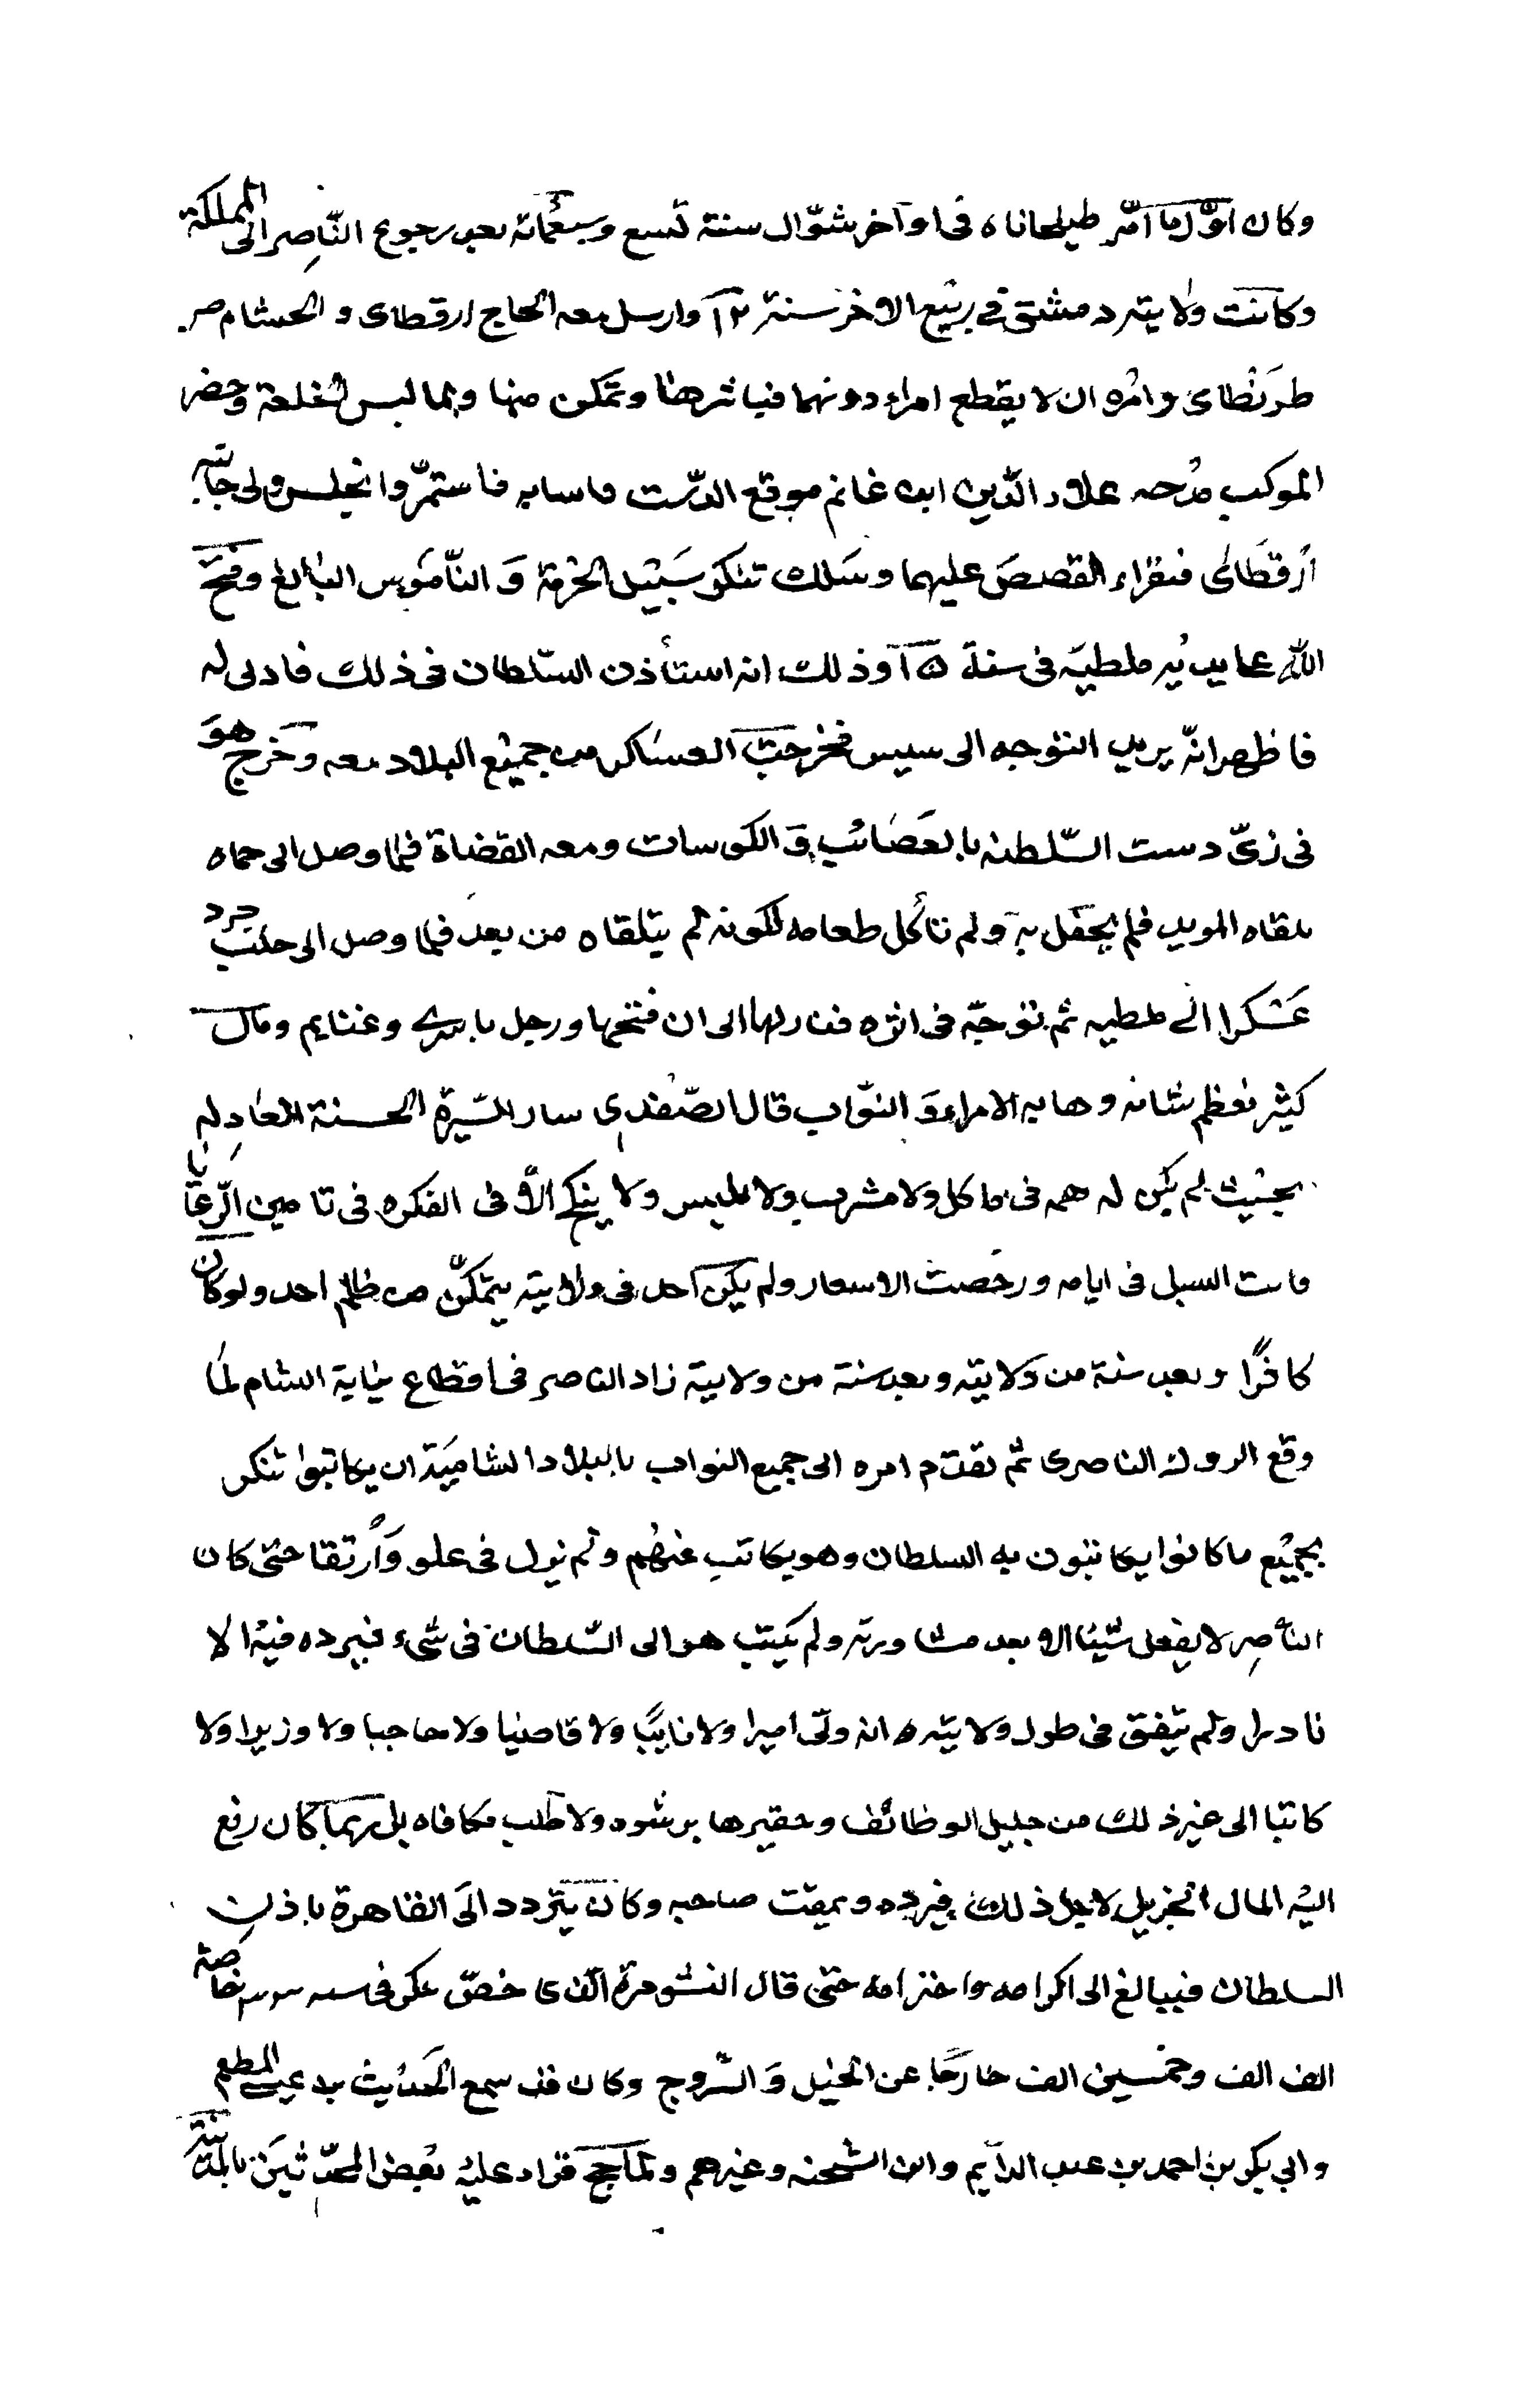 وكان اول ما امّر طبلخاناه فى اواخر شوّال سنة تسع وسبعمائة بعد رجوع النّاصر الى المملكة
وكانت ولايته دمشق في ربيع الاخر سنة ٧١٢ وارسل معه الحاج ارقطاى و الحسام
طرنطاى وامره ان لا يقطع امراء دونهما فباشرها وتمكن منها ولما لبس الخلعة وحضر
الموكب مدحه علاء الدّين ابن غانم موقع الدّست فاستمرّوا لجلس والى جانبه
أرقطاى فتقراء القصص عليهما وسلك تنكز سبيل الحرمة و النّاموس البالغ وفتح
الله على يديه ملطيه فى سنة ٧١٥ وذلك انه استأذن السّلطان فى ذلك فاذن له
فاظهر انّه يريد التوجه الى سيس فخرجت العساكر من جميع البلاد معه وخرج هو
فى زىّ دست السّلطنه بالعصائب و الكوسات ومعه القضاة فلما وصل الى حماه
تلقاه المويد فلم يحفل به ولم تأكل طعامه لكونه لم يتلقاه من بعد فلما وصل الى حلب جرد
عسكرا الى ملطيه ثم توجّه فى اثره فنازلها الى ان فتحها ورحل باسرى وغنايم ومال
كثير فعظم شانه وهابه الامراء و النوّاب قال الصّفدى سار السّيرة الحسنة العادله
بحيث لم يكن له همه فى ماكل ولا مشرب ولا ملبس ولا ينكح الّا فى الفكره فى تامين الرّعايا
السبل فى ايامه ورخصت الاسعار ولم يكن احد فى ولايته يتمكّن من ظلم احد ولو كان
كافرًا وبعد سنة من ولايته وبعد سنة من ولايته زاد الناصر فى اقطاع نيابة الشام لما
وقع الروك الناصرى ثم تقدّم امره الى جميع النواب بالبلاد الشاميّة ان يكاتبوا تنكز
بجميع ما كانوا يكاتبون به السلطان وهو يكاتب عنهم ولم يزل فى علو وارتقا حتى كان
الناصر لا يفعل شيئا الا بعد مشاورته ولم يكتب هو الى السّلطان فى شىء فيرده فيه الا
نادرا ولم يتفق فى طول ولايته انه ولّى اميرا ولا نايبًا ولا قاضيا ولا حاجبا ولا وزيرا ولا
كاتبا الى غير ذلك من جليل الوظائف وحقيرها برشوه ولا طلب مكافاه بل ربما كان رفع
اليه المال الجزيل لاجل ذلك فيرده ويمقت صاحبه وكان يتردد الى القاهرة باذن
السلطان فيبالغ الى اكرامه واحترامه حتى قال النشو مرة الذى خصّ تنكز فى سنه خاصه
الف الف وخمسين الف خارجًا عن الخيل و السّروج وكان قد سمع الحديث عيسى المطعم
وابي بكر بن احمد بن عبد الدايم وابن الشحنه وغيرهم ولما حج قراء عليه بعض المحدّثين بالمدينة